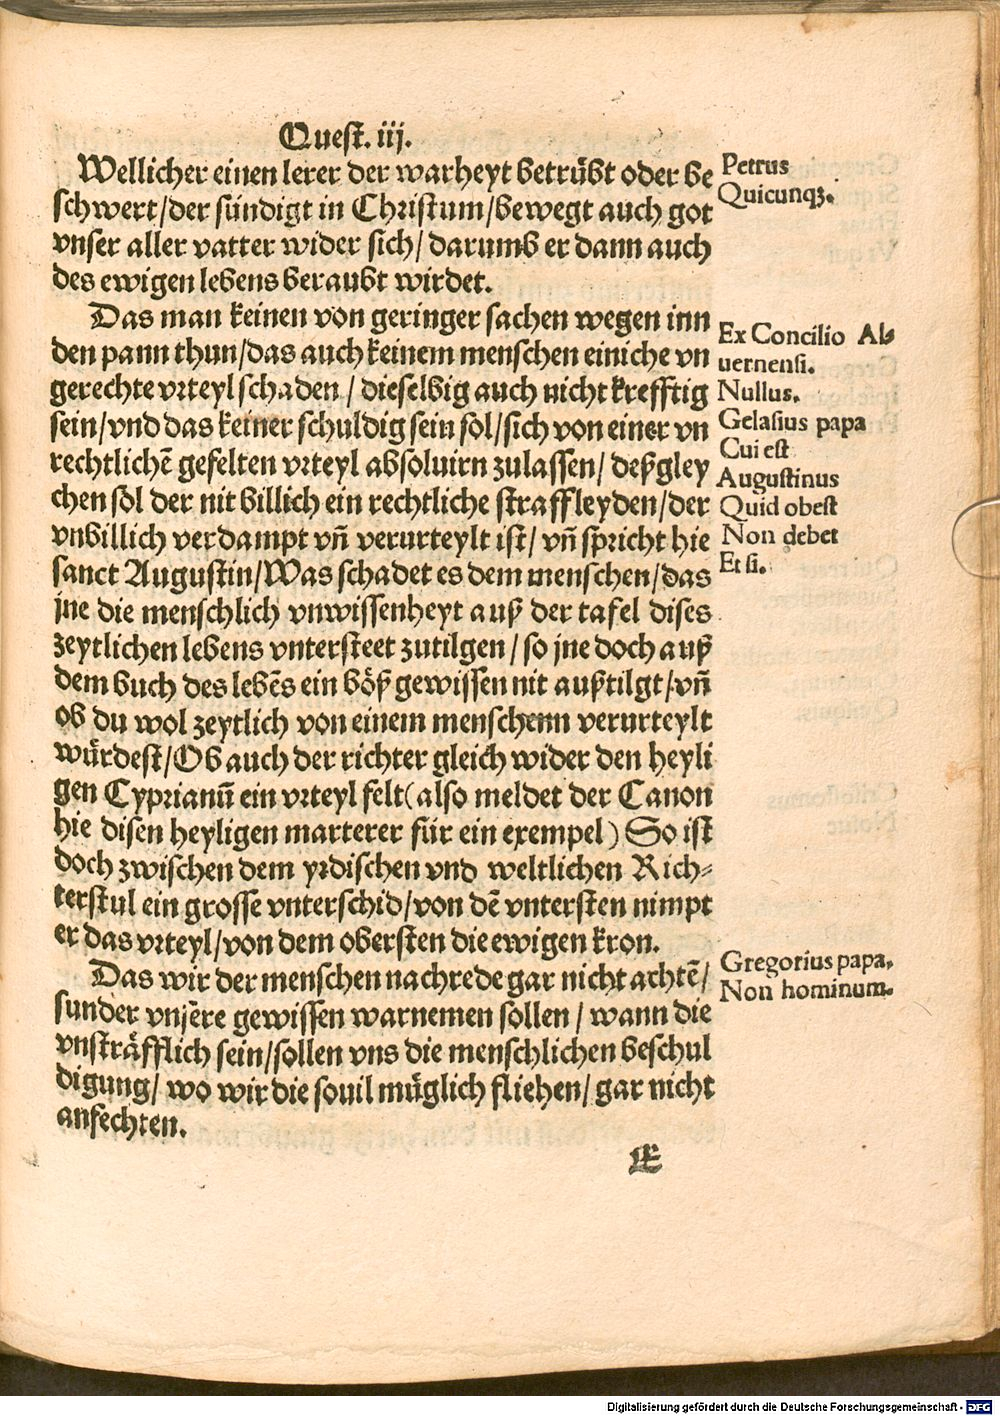 Quest. iij.
Wellicher einen lerer der warheyt betrübt oder be
schwert/der sündigt in Christum/bewegt auch got
vnser aller vatter wider sich/ darumb er dann auch
des ewigen lebens beraubt wirdet.
Petrus
Quicunqꝫ.
Das man keinen von geringer sachen wegen inn
den pann thun/das auch keinem menschen einiche vn
gerechte vrteyl schaden/ dieselbig auch nicht krefftig
sein/vnd das keiner schuldig sein sol/sich von einer vn
rechtlichē gefelten vrteyl absoluirn zulassen/ deßgley
chen sol der nit billich ein rechtliche straff leyden/der
vnbillich verdampt vñ verurteylt ist/ vñ spricht hie
sanct Augustin/Was schadet es dem menschen/das
jne die menschlich vnwissenheyt auß der tafel dises
zeytlichen lebens vntersteet zutilgen/ so jne doch auß
dem buch des lebēs ein böß gewissen nit außtilgt/vñ
ob du wol zeytlich von einem menschenn verurteylt
würdest/Ob auch der richter gleich wider den heyli
gen Cyprianū ein vrteyl felt(also meldet der Canon
hie disen heyligen marterer für ein exempel) So ist
doch zwischen dem yrdischen vnd weltlichen Rich⸗
terstul ein grosse vnterschid/von dē vntersten nimpt
er das vrteyl/von dem obersten die ewigen kron.
Ex Concilio Al⸗
uernensi.
Nullus.
Gelasius papa
Cui est
Augustinus
Quid obest
Non debet
Et si.
Das wir der menschen nachrede gar nicht achtē/
sunder vnsere gewissen warnemen sollen/ wann die
vnsträfflich sein/sollen vns die menschlichen beschul
digung/ wo wir die souil müglich fliehen/ gar nicht
anfechten.
Gregorius papa.
Non hominum.
Digitalisierung gefördert durch die Deutsche Forschungsgemeinschaft - DFG